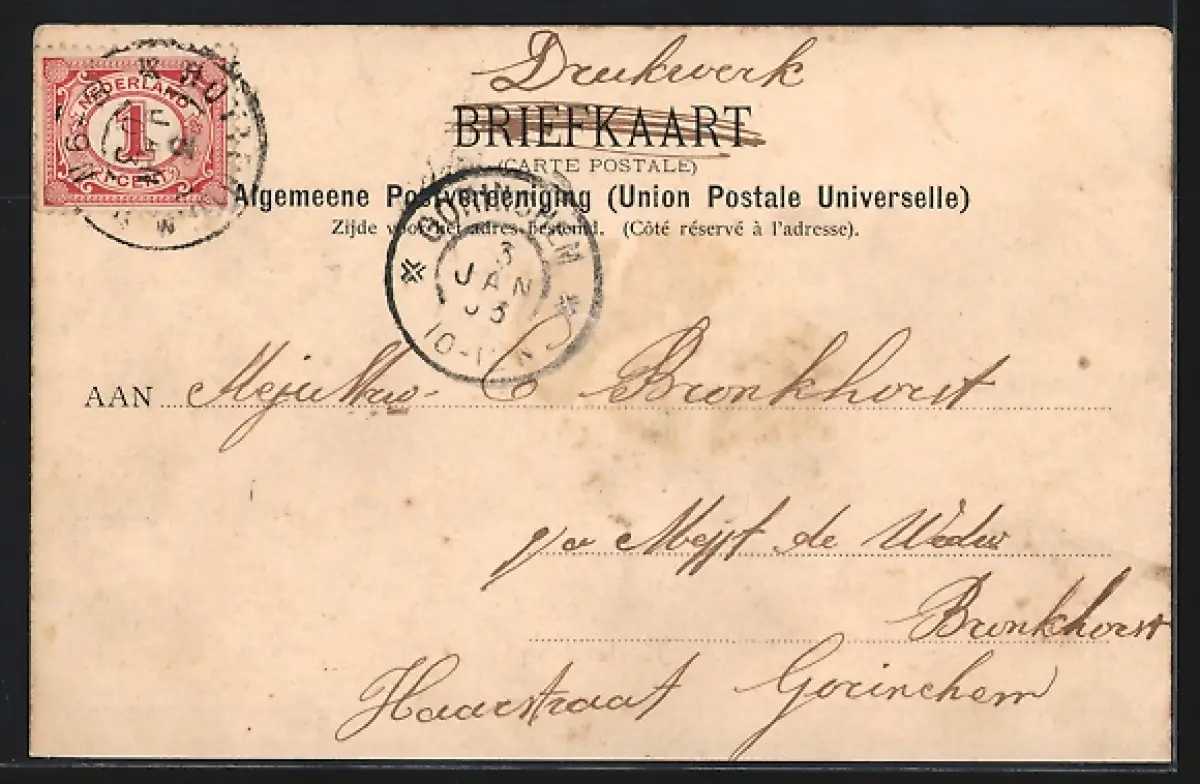 Drukwerk
BRIEFKAART
(CARTE POSTALE)
Algemeene Postvereeniging (Union Postale Universelle)
Zijde voor het adres bestemd. (Côté réservé à l'adresse).
NEDERLAND
1
CENT
GORINCHEM
3
JAN
10-11
AAN Mejuffrw. C Bronkhorst
p/a Mejf de Wedw
Bronkhorst
Haarstraat Gorinchem